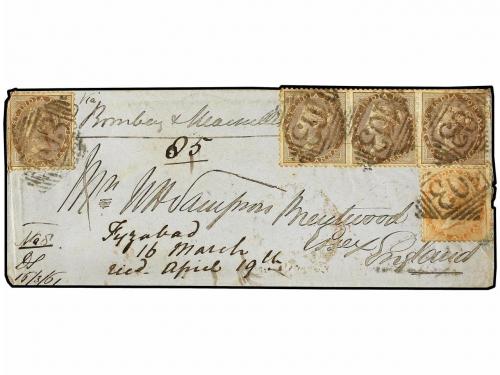 via
Bombay & Marseilles
85
Mrs W H Sampson
Brentwood
Essex
England
Fyzabad
16 March
recd April 19th
15/3/61